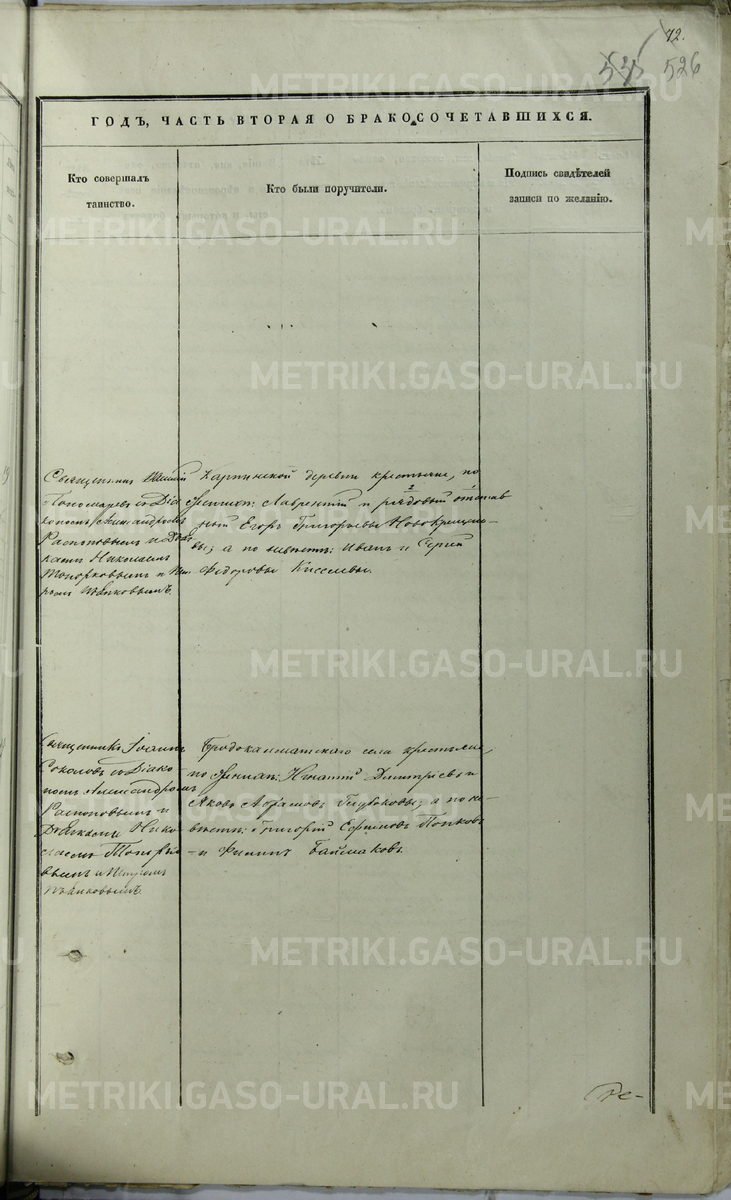 72.
535 526
ГОДЪ, ЧАСТЬ ВТОРАЯ О БРАКОСОЧЕТАВШИХСЯ.
Кто совершалъ
таинство.
Кто были поручители.
Подпись свидѣтелей
записи по желанію.
Священникъ
Пономаревъ съ Діа
кономъ Александромъ
Распоповымъ и Дьяч
комъ Николаемъ
Топорковымъ и Пет
ромъ Пѣнковымъ.
Карпинской деревни крестьяне, по
женихѣ: Лаврентій и рядовый отстав
ный Егоръ Григорьевы Новокрещено
вы; а по невѣстѣ: Иванъ и Сергѣй
Федоровы Киселевы.
Священникъ Іоаннъ
Соколовъ съ Діако
номъ Александромъ
Распоповымъ и
Дьячкомъ Нико
лаемъ Топорко
вымъ и Петромъ
Пѣнковымъ.
Бродокалматскаго села крестьяне,
по женихѣ: Игнатій Димитріевъ и
Яковъ Абрамовъ а по не
вѣстѣ: Григорій Ефимовъ Попковъ
и Филиппъ Баймаковъ.
METRIKI.GASO-URAL.RU